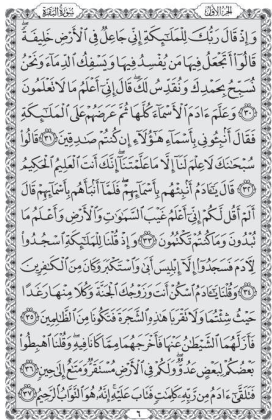 الجزء الأول سورة البقرة
وَإِذْ قَالَ رَبُّكَ لِلْمَلَٰٓئِكَةِ إِنِّى جَاعِلٌ فِى ٱلْأَرْضِ خَلِيفَةً
قَالُوٓا۟ أَتَجْعَلُ فِيهَا مَن يُفْسِدُ فِيهَا وَيَسْفِكُ ٱلدِّمَآءَ وَنَحْنُ
نُسَبِّحُ بِحَمْدِكَ وَنُقَدِّسُ لَكَ قَالَ إِنِّىٓ أَعْلَمُ مَا لَا تَعْلَمُونَ
٣٠ وَعَلَّمَ ءَادَمَ ٱلْأَسْمَآءَ كُلَّهَا ثُمَّ عَرَضَهُمْ عَلَى ٱلْمَلَٰٓئِكَةِ
فَقَالَ أَنۢبِـُٔونِى بِأَسْمَآءِ هَٰٓؤُلَآءِ إِن كُنتُمْ صَٰدِقِينَ ٣١ قَالُوا۟
سُبْحَٰنَكَ لَا عِلْمَ لَنَآ إِلَّا مَا عَلَّمْتَنَآ إِنَّكَ أَنتَ ٱلْعَلِيمُ ٱلْحَكِيمُ
٣٢ قَالَ يَٰٓـَٔادَمُ أَنۢبِئْهُم بِأَسْمَآئِهِمْ فَلَمَّآ أَنۢبَأَهُم بِأَسْمَآئِهِمْ قَالَ
أَلَمْ أَقُل لَّكُمْ إِنِّىٓ أَعْلَمُ غَيْبَ ٱلسَّمَٰوَٰتِ وَٱلْأَرْضِ وَأَعْلَمُ مَا
تُبْدُونَ وَمَا كُنتُمْ تَكْتُمُونَ ٣٣ وَإِذْ قُلْنَا لِلْمَلَٰٓئِكَةِ ٱسْجُدُوا۟
لِـَٔادَمَ فَسَجَدُوٓا۟ إِلَّآ إِبْلِيسَ أَبَىٰ وَٱسْتَكْبَرَ وَكَانَ مِنَ ٱلْكَٰفِرِينَ
٣٤ وَقُلْنَا يَٰٓـَٔادَمُ ٱسْكُنْ أَنتَ وَزَوْجُكَ ٱلْجَنَّةَ وَكُلَا مِنْهَا رَغَدًا
حَيْثُ شِئْتُمَا وَلَا تَقْرَبَا هَٰذِهِ ٱلشَّجَرَةَ فَتَكُونَا مِنَ ٱلظَّٰلِمِينَ ٣٥
فَأَزَلَّهُمَا ٱلشَّيْطَٰنُ عَنْهَا فَأَخْرَجَهُمَا مِمَّا كَانَا فِيهِ وَقُلْنَا ٱهْبِطُوا۟
بَعْضُكُمْ لِبَعْضٍ عَدُوٌّ وَلَكُمْ فِى ٱلْأَرْضِ مُسْتَقَرٌّ وَمَتَٰعٌ إِلَىٰ حِينٍ ٣٦
فَتَلَقَّىٰٓ ءَادَمُ مِن رَّبِّهِۦ كَلِمَٰتٍ فَتَابَ عَلَيْهِ إِنَّهُۥ هُوَ ٱلتَّوَّابُ ٱلرَّحِيمُ ٣٧
٦